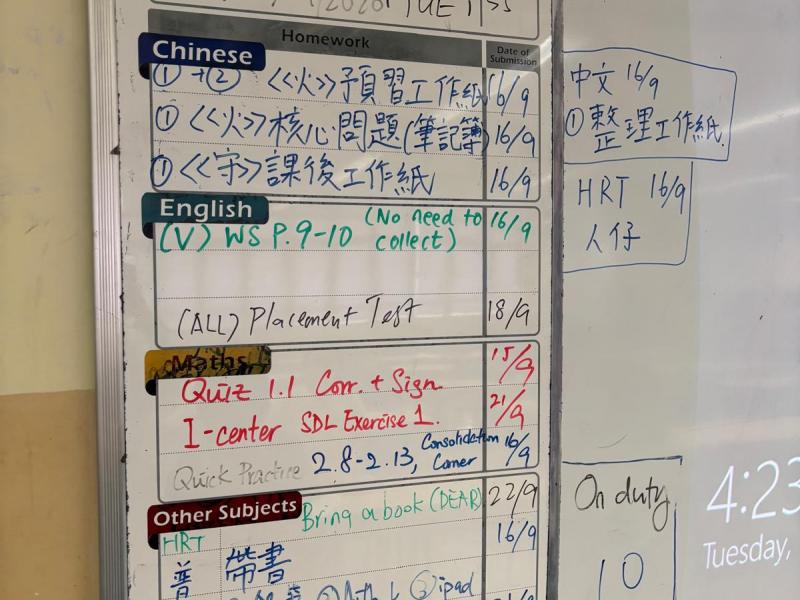 TUE
Homework
Date of
Submission
Chinese
①→② <<火>>預習工作紙 16/9
① <<火>>核心問題(筆記簿) 16/9
① <<守>>課後工作紙 16/9
English
(V) WS P.9-10 (No need to collect) 16/9
(ALL) Placement Test 18/9
Maths
Quiz 1.1 Corr. + Sign 15/9
I-center SDL Exercise 1. 21/9
Quick Practice 2.8-2.13, Consolidation Corner 16/9
Other Subjects
HRT Bring a book (DEAR) 22/9
普 帶書 16/9
ipad
中文 16/9
① 整理工作紙
HRT 16/9
人仔
On duty
10
4:23
Tuesday,